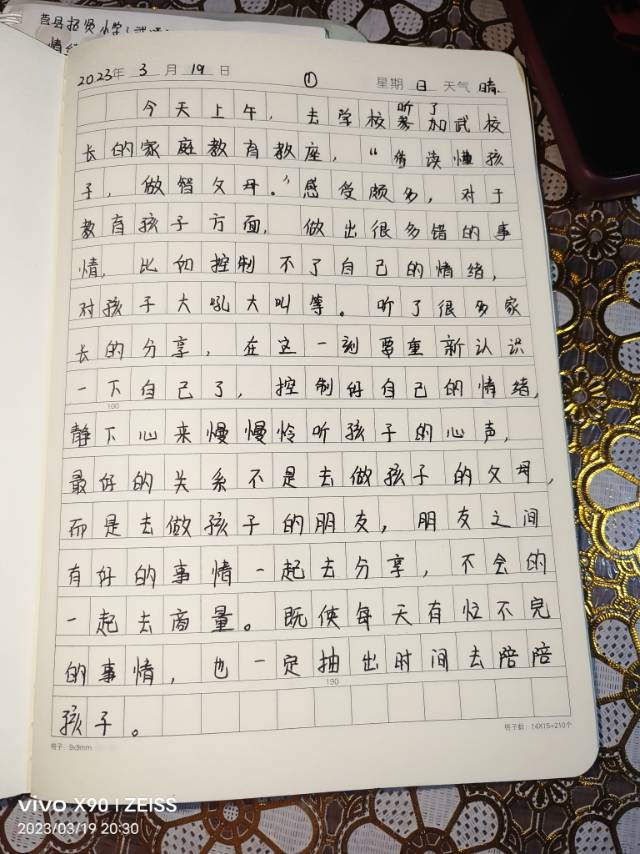 莒县招贤小学
情
2023年 3 月 19 日 ① 星期 日 天气 晴
今天上午,去学校听了参加武校
长的家庭教育教座,“偹读懂孩
子,做智父母。”感受颇多,对于
教育孩子方面,做出很多错的事
情,比如控制不了自己的情绪,
对孩子大吼大叫等。听了很多家
长的分享,在这一刻要重新认识
一下自己了,控制好自己的情绪,
100
静下心来慢慢怜听孩子的心声,
最好的关系不是去做孩子的父母,
而是去做孩子的朋友,朋友之间
有好的事情一起去分享,不会的
一起去商量。既使每天有忙不完
的事情,也一定抽出时间去陪陪
190
孩子。
格子:9x9mm
格子数:14X15=210个
vivo X90 | ZEISS
2023/03/19 20:30